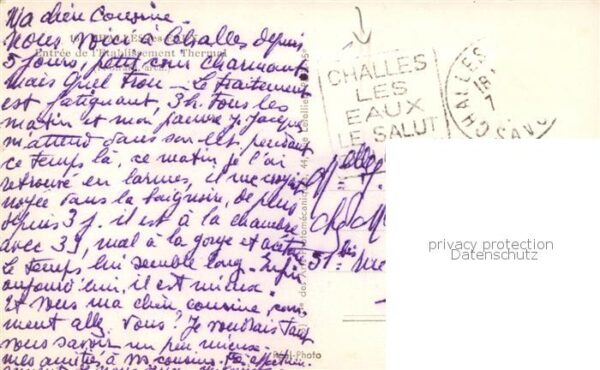 Ma chère Cousine.
Nous voici à Challes depuis
5 jours, petit coin charmant
Entrée de l'Etablissement Thermal
mais quel trou - Le traitement
est fatigant, 3h. tous les
matin et mon pauvre J. Jacques
m'attend dans son lit pendant
ce temps là, ce matin je l'ai
retrouvé en larmes, il me croyait
noyée dans la baignoire, de plus
depuis 3 j. il est à la chambre
avec 39, mal à la gorge et
Le temps lui semble long. Enfin
aujourd'hui, il est mieux.
Et vous ma chère cousine, com-
ment allez vous? Je voudrais tant
vous savoir un peu mieux.
mes amitiés à vos cousins.
CHALLES
LES
EAUX
LE SALUT
CHALLES
18
7
SAV
51 bis
Réal-Photo
privacy protection
Datenschutz